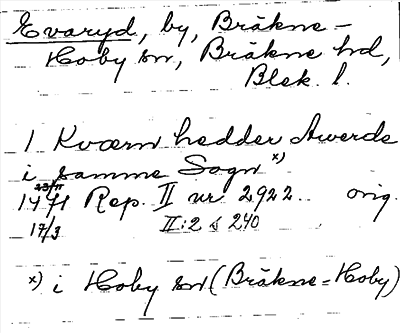 Evaryd, by, Bräkne-
Hoby sn, Bräkne hd,
Blek. l.
1 Kværn hedder Awerde
i samme Sogn x)
23/11
1471 Rep. II nr 2922. orig.
17/3 II:2 s 240
x) i Hoby sn (Bräkne-Hoby)